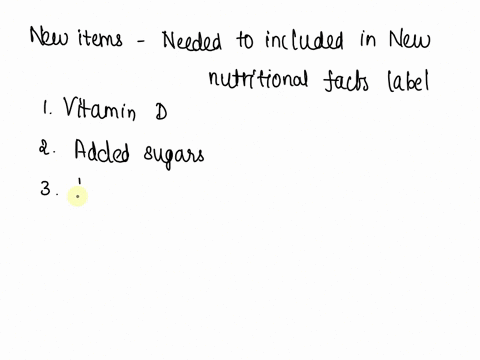 New items - Needed to included in New
nutritional facts label
1. Vitamin D
2. Added sugars
3.